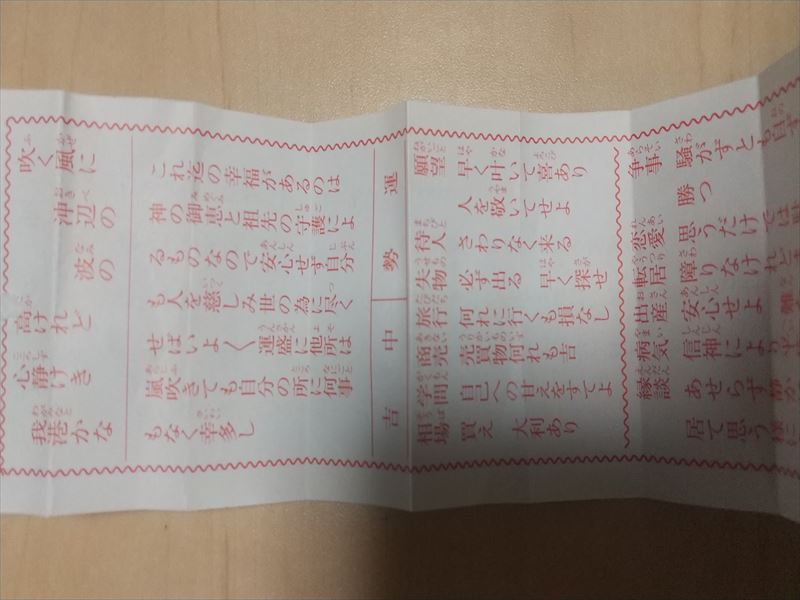 吹く風に
沖辺の
波の
高けれど
心静けき
我港かな
これ迄の幸福があるのは
神の御恵と祖先の守護によ
るものなので安心せず自分
も人を慈しみ世の為に尽く
せばいよく運盛に他所は
風吹きても自分の所に何事
もなく幸多し
運勢 中吉
願望 早く叶いて喜あり
人を敬いてせよ
待人 さわりなく来る
失物 必ず出る 早く探せ
旅行 何れに行くも損なし
商売 売買物何れも吉
学問 自己への甘えをすてよ
相場 買え 大利あり
争事 騒がずとも自ず
勝つ
恋愛 思うだけでは
転居 障りなけれど
出産 安心せよ 難
病気 信神により
縁談 あせらず静かに
居て思う様に